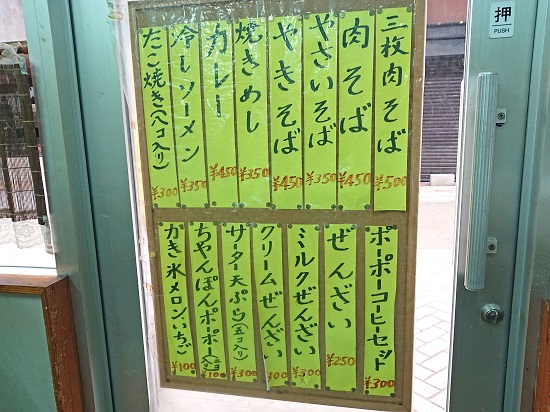 押
PUSH
三枚肉そば ¥500
肉そば ¥450
やさいそば ¥350
やきそば ¥450
焼きめし ¥350
カレー ¥450
冷しソーメン ¥350
たこ焼き(八コ入り) ¥300
ポーポーコーヒーセット ¥300
ぜんざい ¥250
ミルクぜんざい ¥300
クリームぜんざい 300
サーター天ぷら(五コ入り) ¥300
ちゃんぽんポーポー ¥100
かき氷メロンいちご ¥100